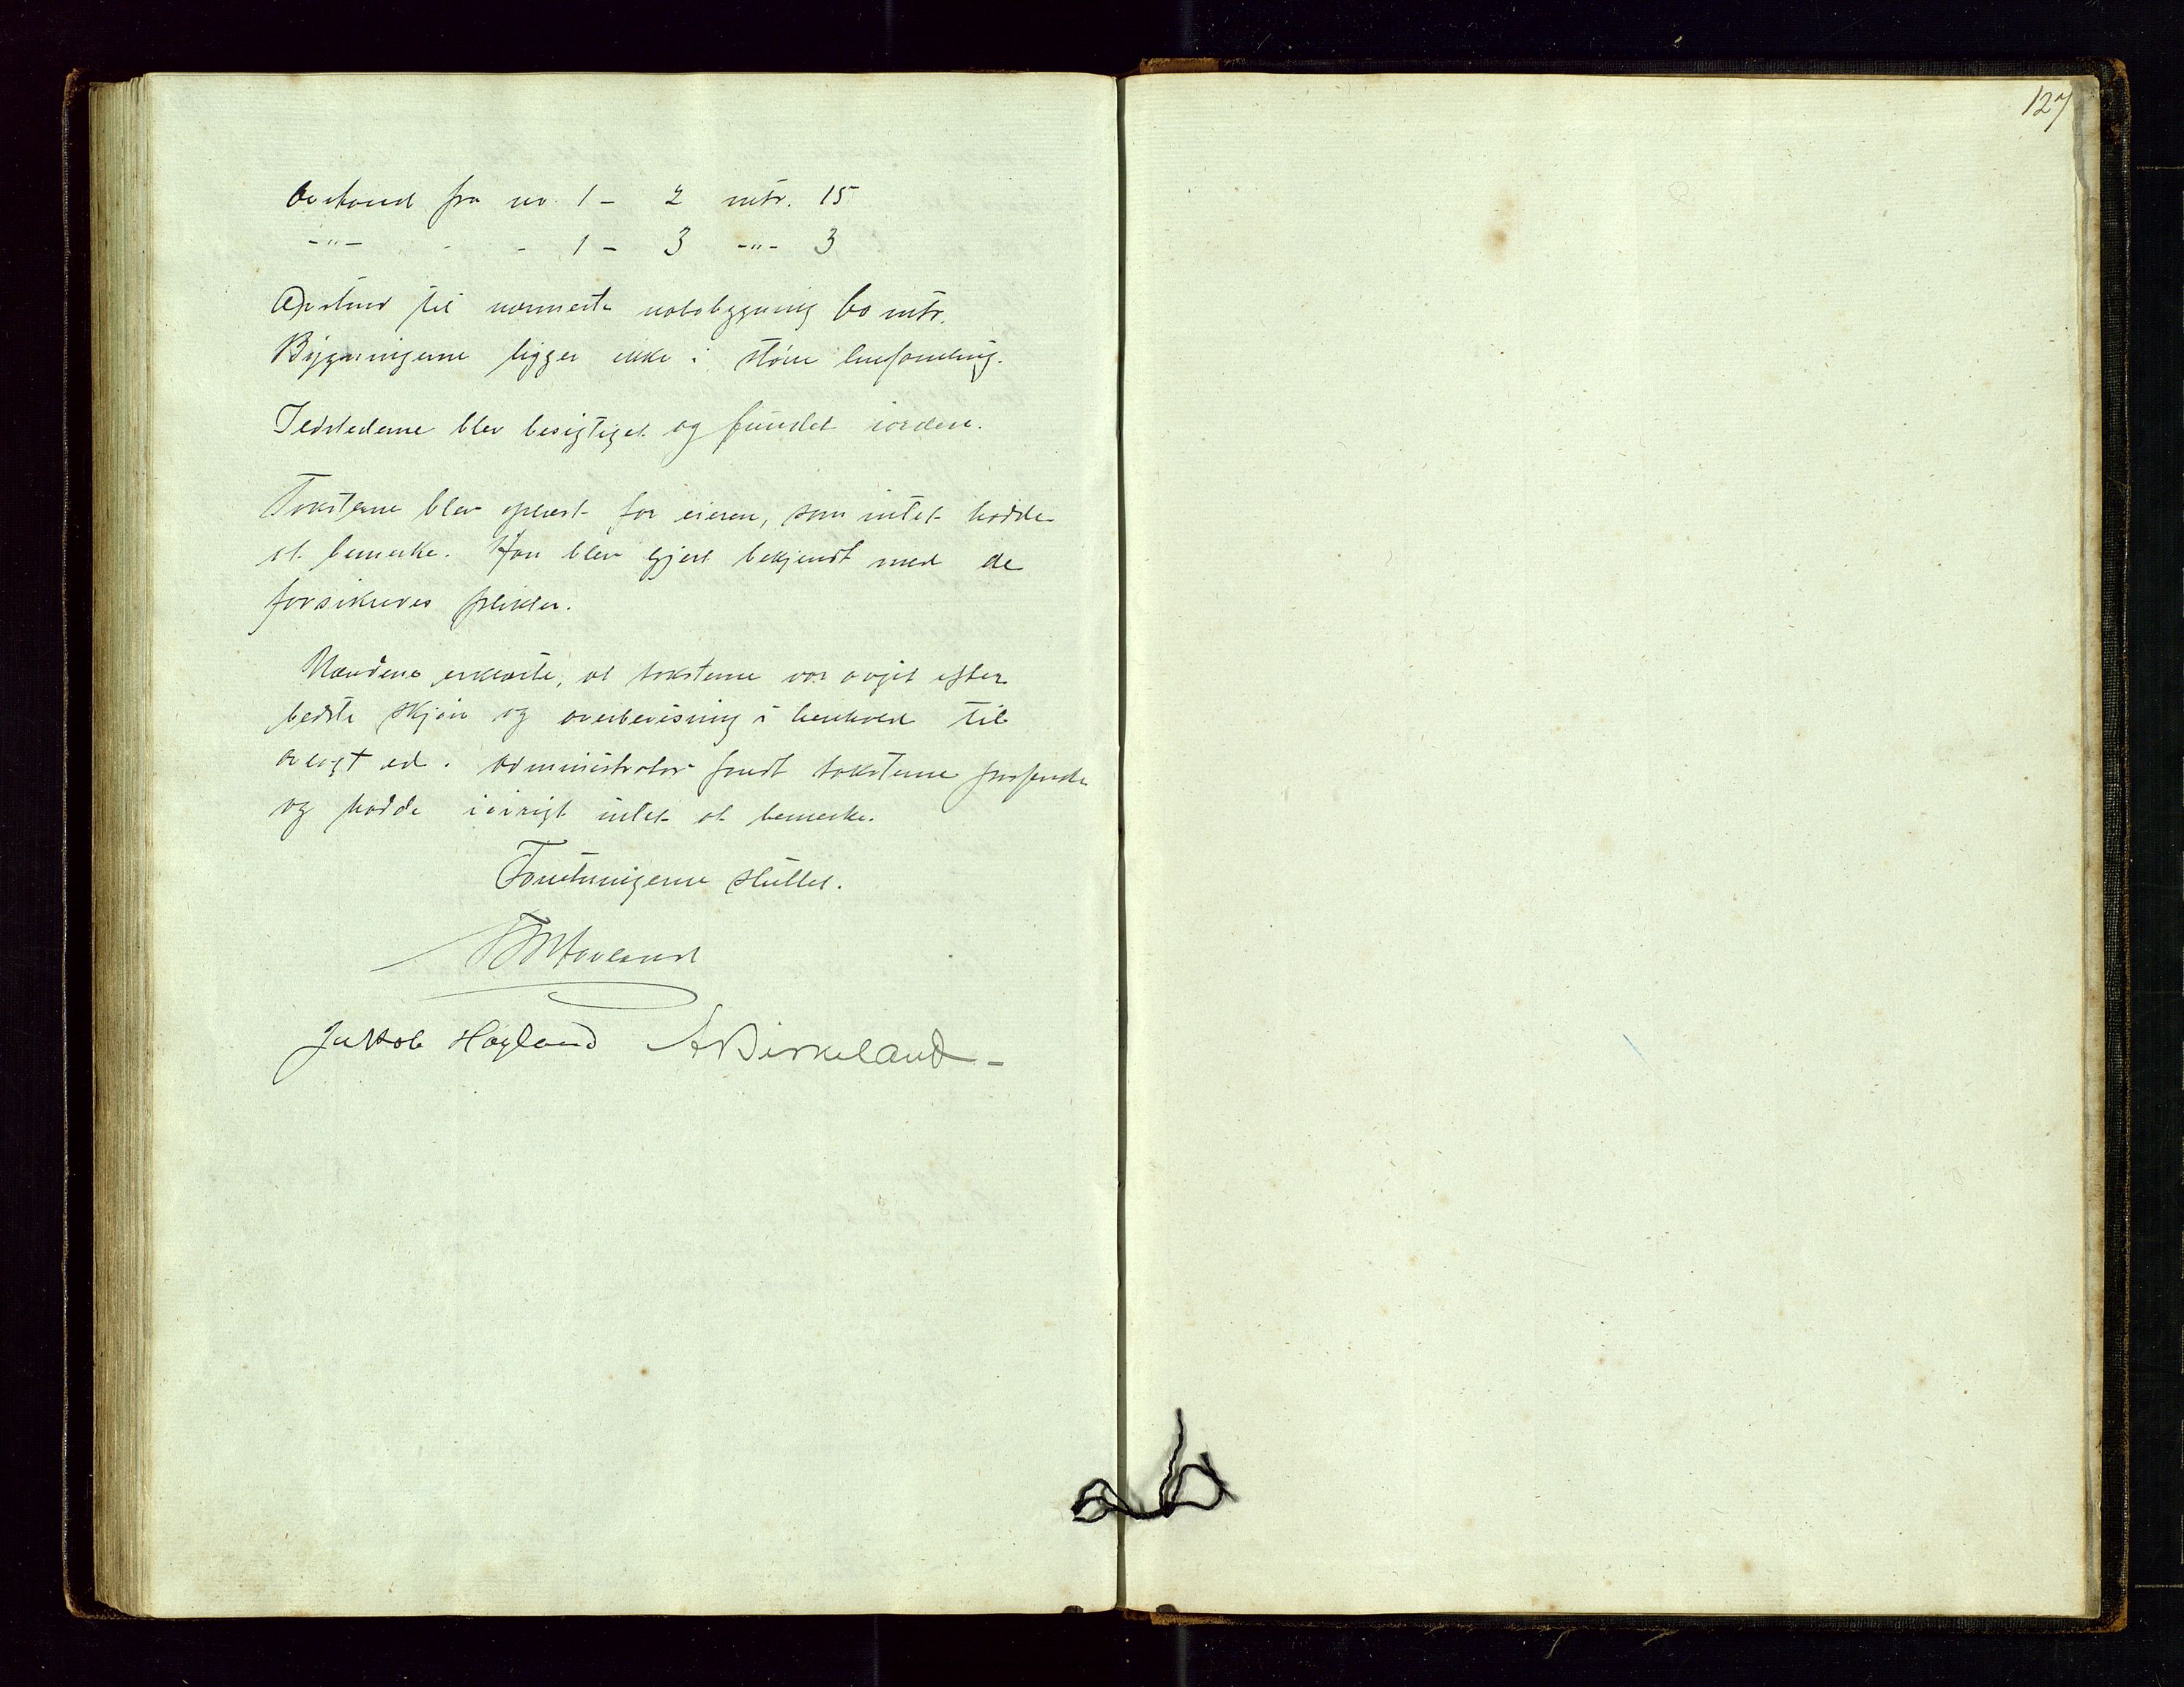 Avstand fra nr. 1 - 2 mtr. 15
-"- - - 1 - 3 -"- 3
Avstand til nærmeste nabobygning 60 mtr.
Bygningerne ligger ikke i større hussamling.
Ildstederne blev besigtiget og fundet iorden.
Taksterne blev oplæst for eieren, som intet hadde
at bemerke. Han blev gjort bekjendt med de
forsikredes plikter.
Mændene erklærte, at taksterne var avgit efter
bedste skjøn og overbevisning i henhold til
avlagt ed. Administrator fandt taksterne passende
og hadde iøvrigt intet at bemerke.
Forretningerne sluttet.
Høyland
Jakob Høyland A Birkeland -
127